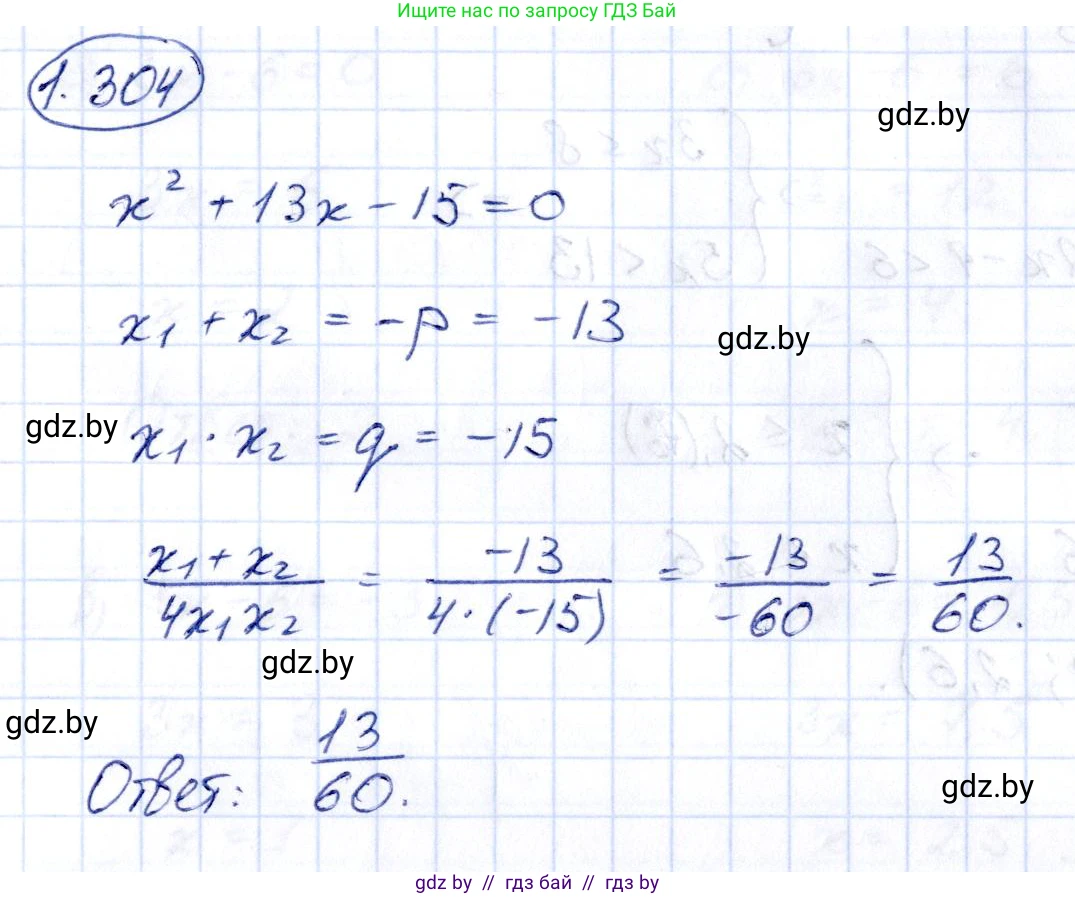 Ищите нас по запросу ГДЗ Бай
1.304
gdz.by
x² + 13x - 15 = 0
x₁ + x₂ = -p = -13
gdz.by
gdz.by
x₁ · x₂ = q = -15
(x₁ + x₂)/(4x₁x₂) = -13/(4·(-15)) = -13/-60 = 13/60.
gdz.by
gdz.by
Ответ: 13/60.
gdz.by
gdz by // гдз бай // gdz by